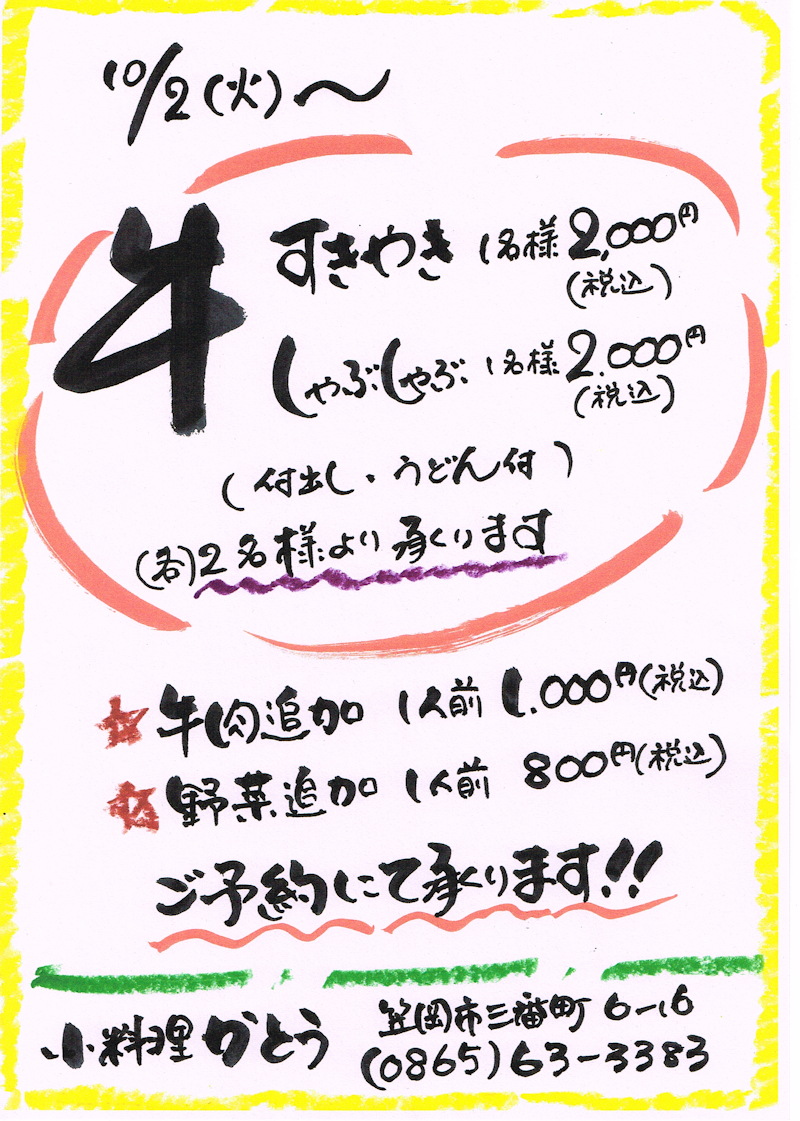 10/2(火)〜
牛
すきやき 1名様 2,000円
(税込)
しゃぶしゃぶ 1名様 2.000円
(税込)
(付出し・うどん付)
(各)2名様より承くります
☆牛肉追加 1人前 1.000円(税込)
☆野菜追加 1人前 800円(税込)
ご予約にて承くります!!
小料理 かとう
笠岡市三番町6-16
(0865)63-3383